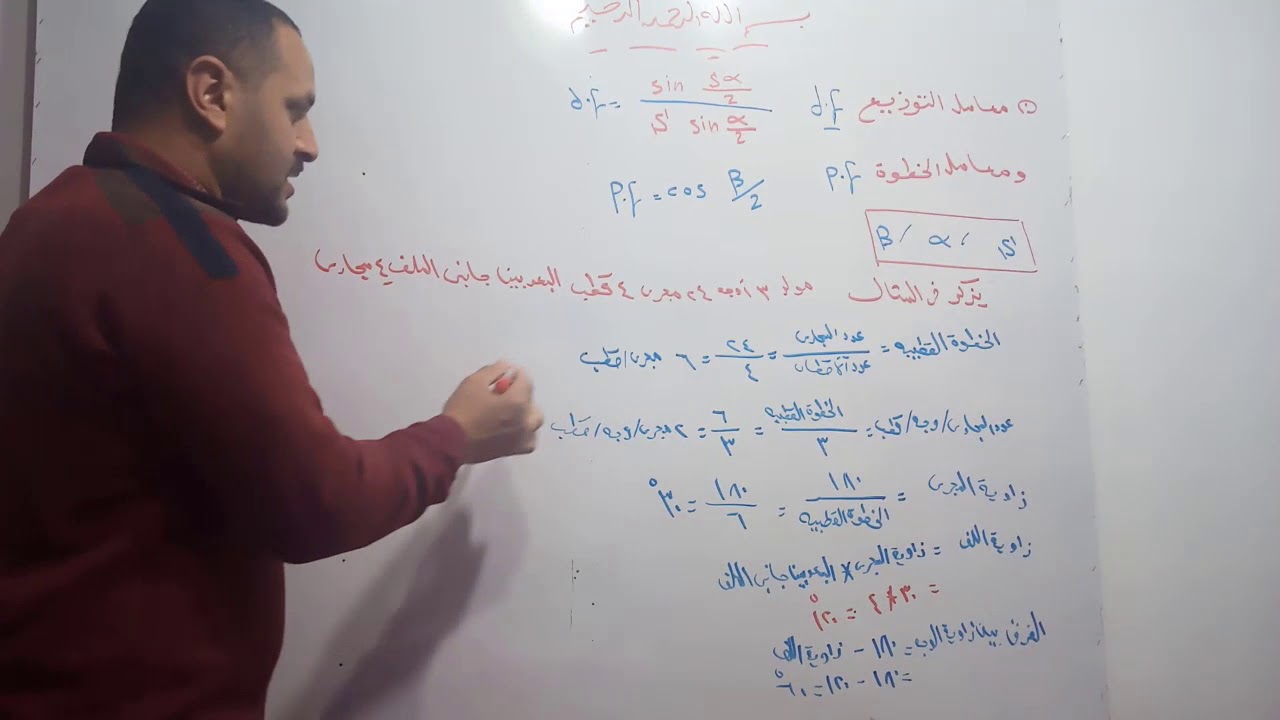 بسم الله الرحمن الرحيم
① معامل التوزيع d.f d.f = sin Sα/2 / S sin α/2
ومعامل الخطوة p.f P.f = cos β/2
β / α / S
يذكر فى المثال مولد ٣ أوجه ٢٤ مجرى ٤ قطب البعد بين جانبى الملف ٤ مجارى
الخطوة القطبيه = عدد المجارى / عدد الاقطاب = ٢٤ / ٤ = ٦ مجرى/قطب
عدد المجارى/وجه/قطب = الخطوة القطبيه / ٣ = ٦ / ٣ = ٢ مجرى/وجه/قطب
زاوية المجرى = ١٨٠ / الخطوة القطبيه = ١٨٠ / ٦ = ٣٠°
زاوية اللف = زاوية المجرى * البعد بين جانبى اللف
= ٣٠ * ٤ = ١٢٠°
الفرق بين زاوية = ١٨٠ - زاوية اللف
= ١٨٠ - ١٢٠ = ٦٠°